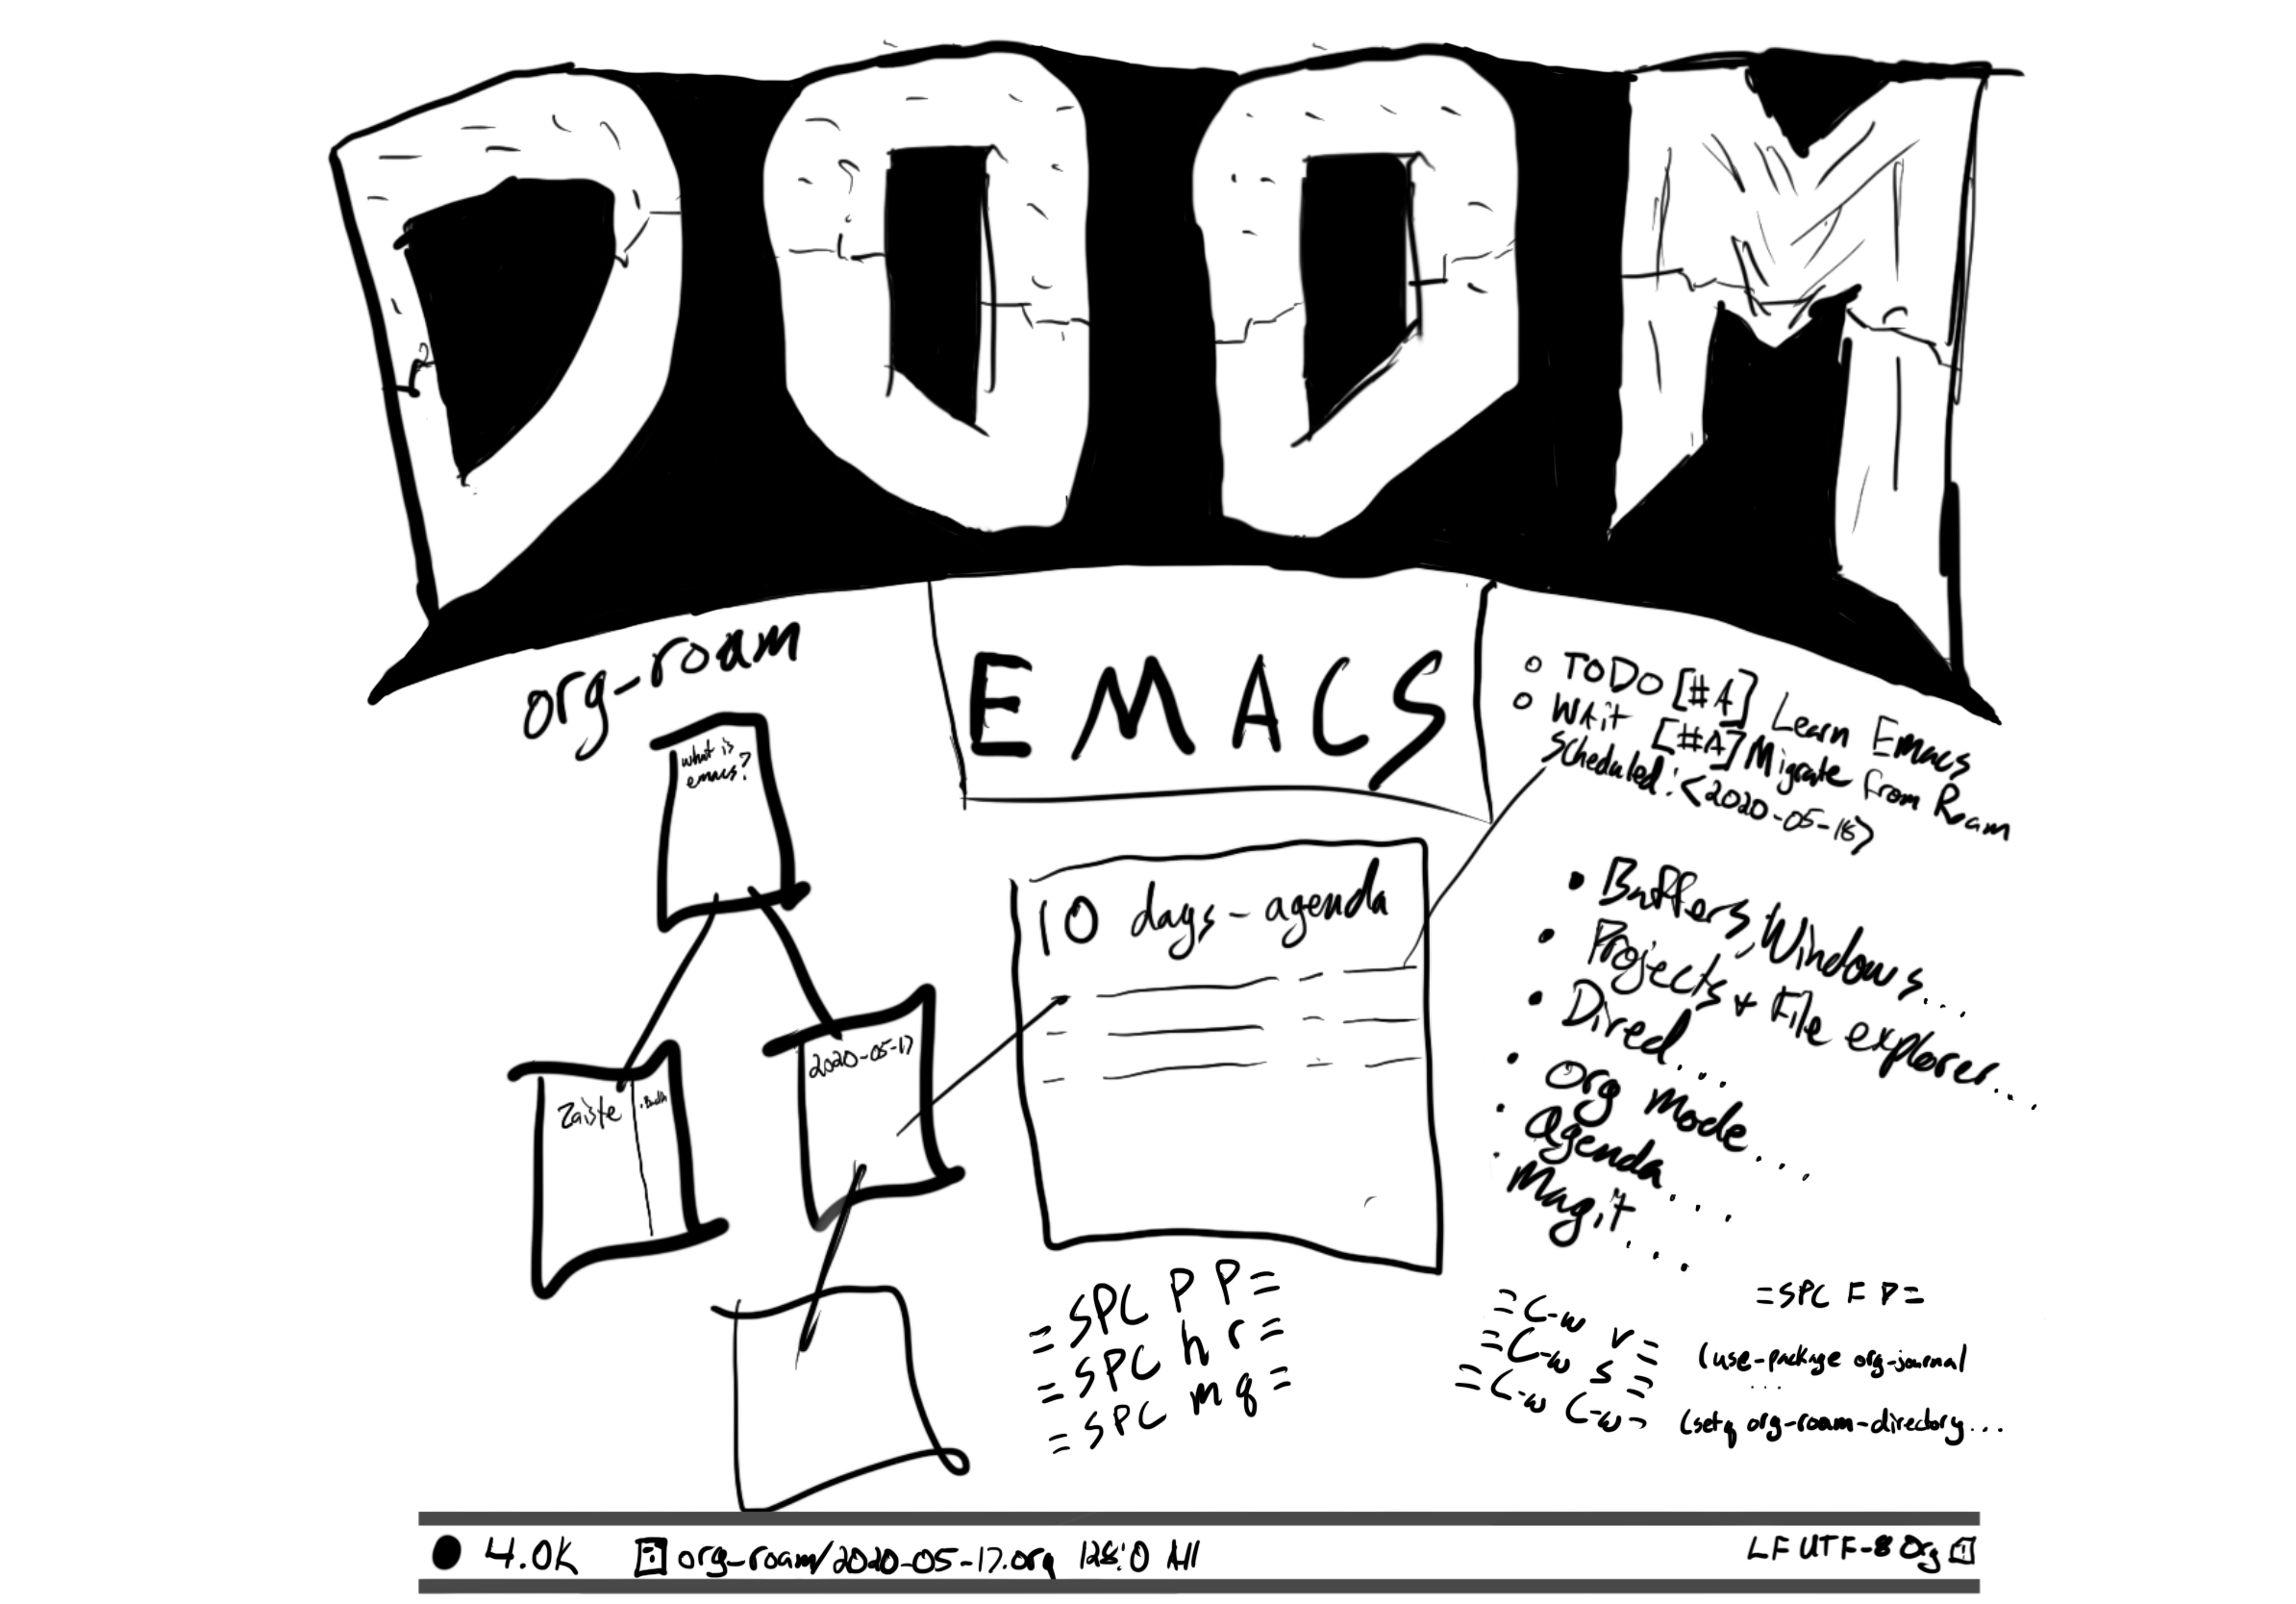 DOOM
EMACS
org-roam
what is
emacs?
Zaiste
2020-05-17
10 days-agenda
TODO [#A] Learn Emacs
Wait [#A] Migrate from Roam
Scheduled: <2020-05-18>
• Buffers, Windows...
• Projects + File explorer...
• Dired...
• Org mode...
• Agenda...
• Magit...
=SPC P P=
=SPC h r=
=SPC m q=
=C-w v=
=C-w s=
=C-w C-w=
=SPC F P=
(use-package org-journal
...
(setq org-roam-directory...
4.0K org-roam/2020-05-17.org 128:0 All
LF UTF-8 Org